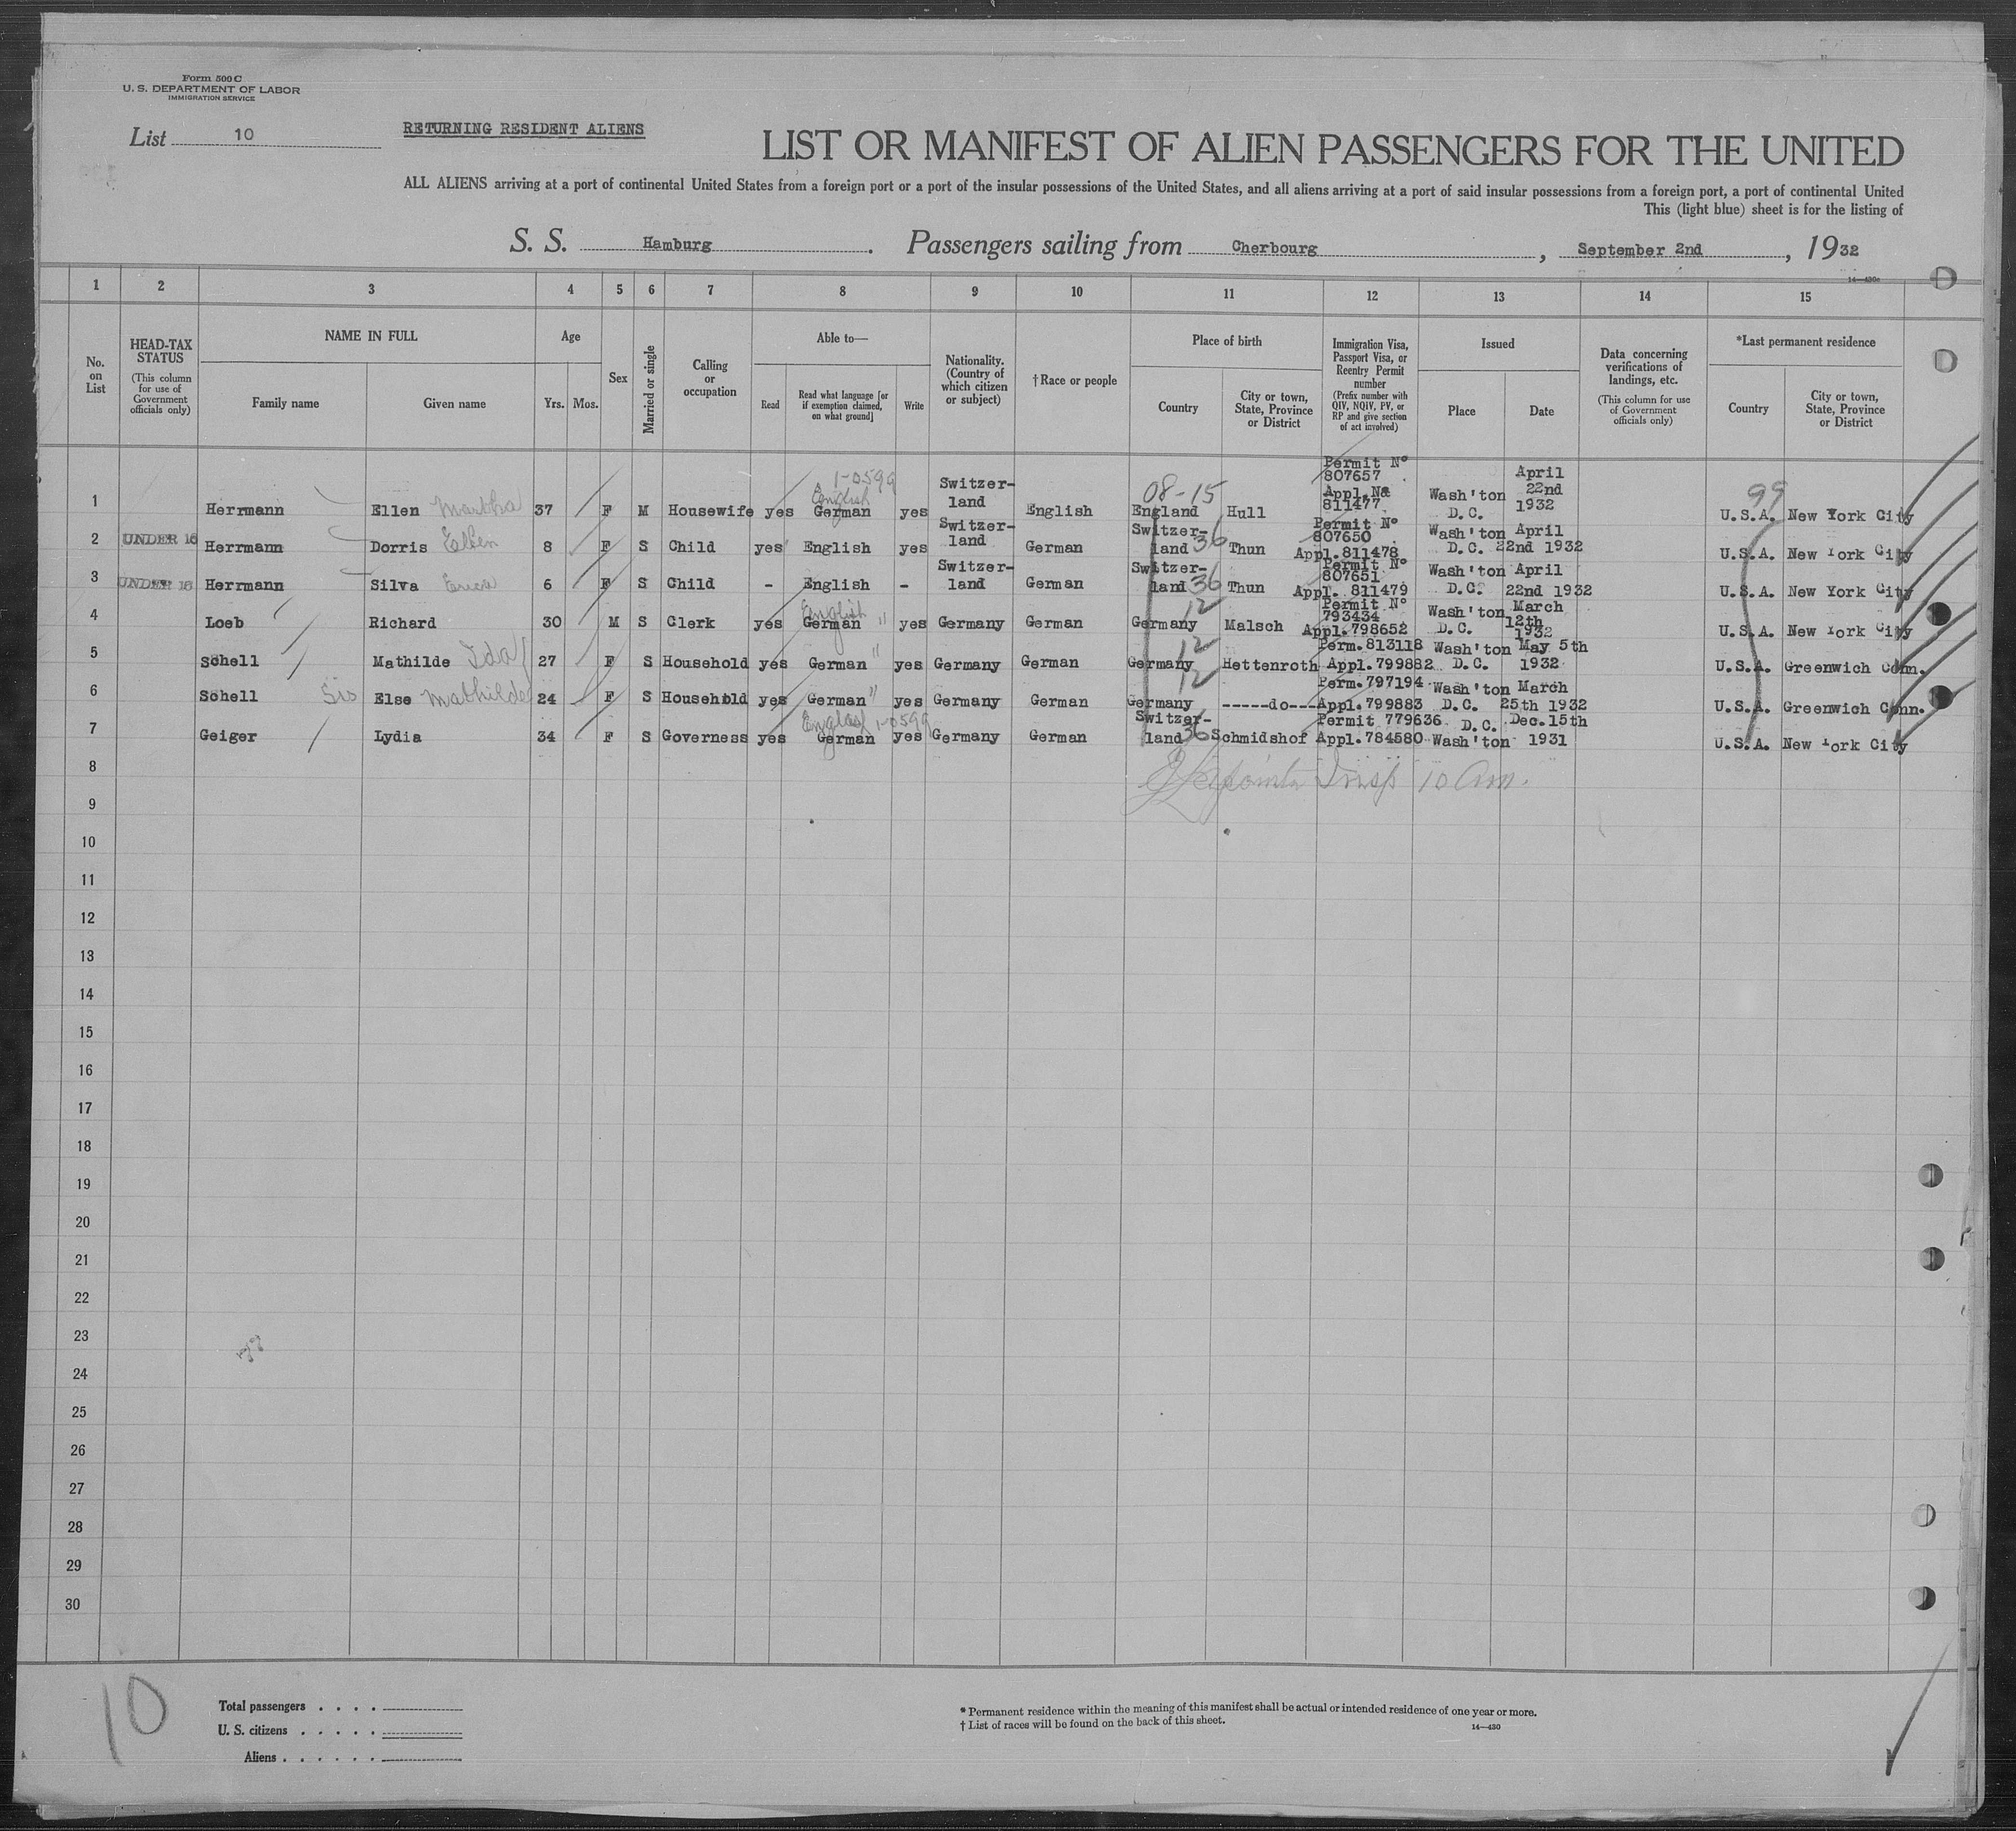 Form 500 C
U. S. DEPARTMENT OF LABOR
IMMIGRATION SERVICE
List 10
RETURNING RESIDENT ALIENS
LIST OR MANIFEST OF ALIEN PASSENGERS FOR THE UNITED
ALL ALIENS arriving at a port of continental United States from a foreign port or a port of the insular possessions of the United States, and all aliens arriving at a port of said insular possessions from a foreign port, a port of continental United
This (light blue) sheet is for the listing of
S. S. Hamburg. Passengers sailing from Cherbourg, September 2nd, 1932
14—430c
1 2 3 4 5 6 7 8 9 10 11 12 13 14 15
No. on List
HEAD-TAX STATUS (This column for use of Government officials only)
NAME IN FULL
Family name Given name
Age
Yrs. Mos.
Sex
Married or single
Calling or occupation
Able to—
Read Read what language [or if exemption claimed, on what ground] Write
Nationality. (Country of which citizen or subject)
†Race or people
Place of birth
Country City or town, State, Province or District
Immigration Visa, Passport Visa, or Reentry Permit number (Prefix number with QIV, NQIV, PV, or RP and give section of act involved)
Issued
Place Date
Data concerning verifications of landings, etc. (This column for use of Government officials only)
*Last permanent residence
Country City or town, State, Province or District
1 Herrmann Ellen Martha 37 F M Housewife yes 1-0599 English German yes Switzer-land English 08-15 England Hull Permit No 807657 Appl.No 811477 Wash'ton D.C. April 22nd 1932 99 U.S.A. New York City
2 UNDER 16 Herrmann Dorris Ellen 8 F S Child yes English yes Switzer-land German Switzer-land 36 Thun Permit No 807650 Appl.811478 Wash'ton D.C. April 22nd 1932 U.S.A. New York City
3 UNDER 16 Herrmann Silva Erica 6 F S Child - English - Switzer-land German Switzer-land 36 Thun Permit No 807651 Appl. 811479 Wash'ton D.C. April 22nd 1932 U.S.A. New York City
4 Loeb Richard 30 M S Clerk yes English German " yes Germany German 12 Germany Malsch Permit No 793434 Appl.798652 Wash'ton D.C. March 12th 1932 U.S.A. New York City
5 Schell Mathilde Ida 27 F S Household yes German " yes Germany German 12 Germany Hettenroth Perm.813118 Appl.799882 Wash'ton D.C. May 5th 1932 U.S.A. Greenwich Conn.
6 Schell Sis Else Mathilde 24 F S Household yes German " yes Germany German 12 Germany -----do--- Perm.797194 Appl.799883 Wash'ton D.C. March 25th 1932 U.S.A. Greenwich Conn.
7 Geiger Lydia 34 F S Governess yes English 1-0599 German yes Germany German Switzer-land 36 Schmidshof Permit 779636 Appl.784580 D.C. Wash'ton Dec.15th 1931 U.S.A. New York City
8 Insp 10 am.
9
10
11
12
13
14
15
16
17
18
19
20
21
22
23
24
25
26
27
28
29
30
10
Total passengers . . . .
U. S. citizens . . . . .
Aliens . . . . . .
* Permanent residence within the meaning of this manifest shall be actual or intended residence of one year or more.
† List of races will be found on the back of this sheet.
14—430